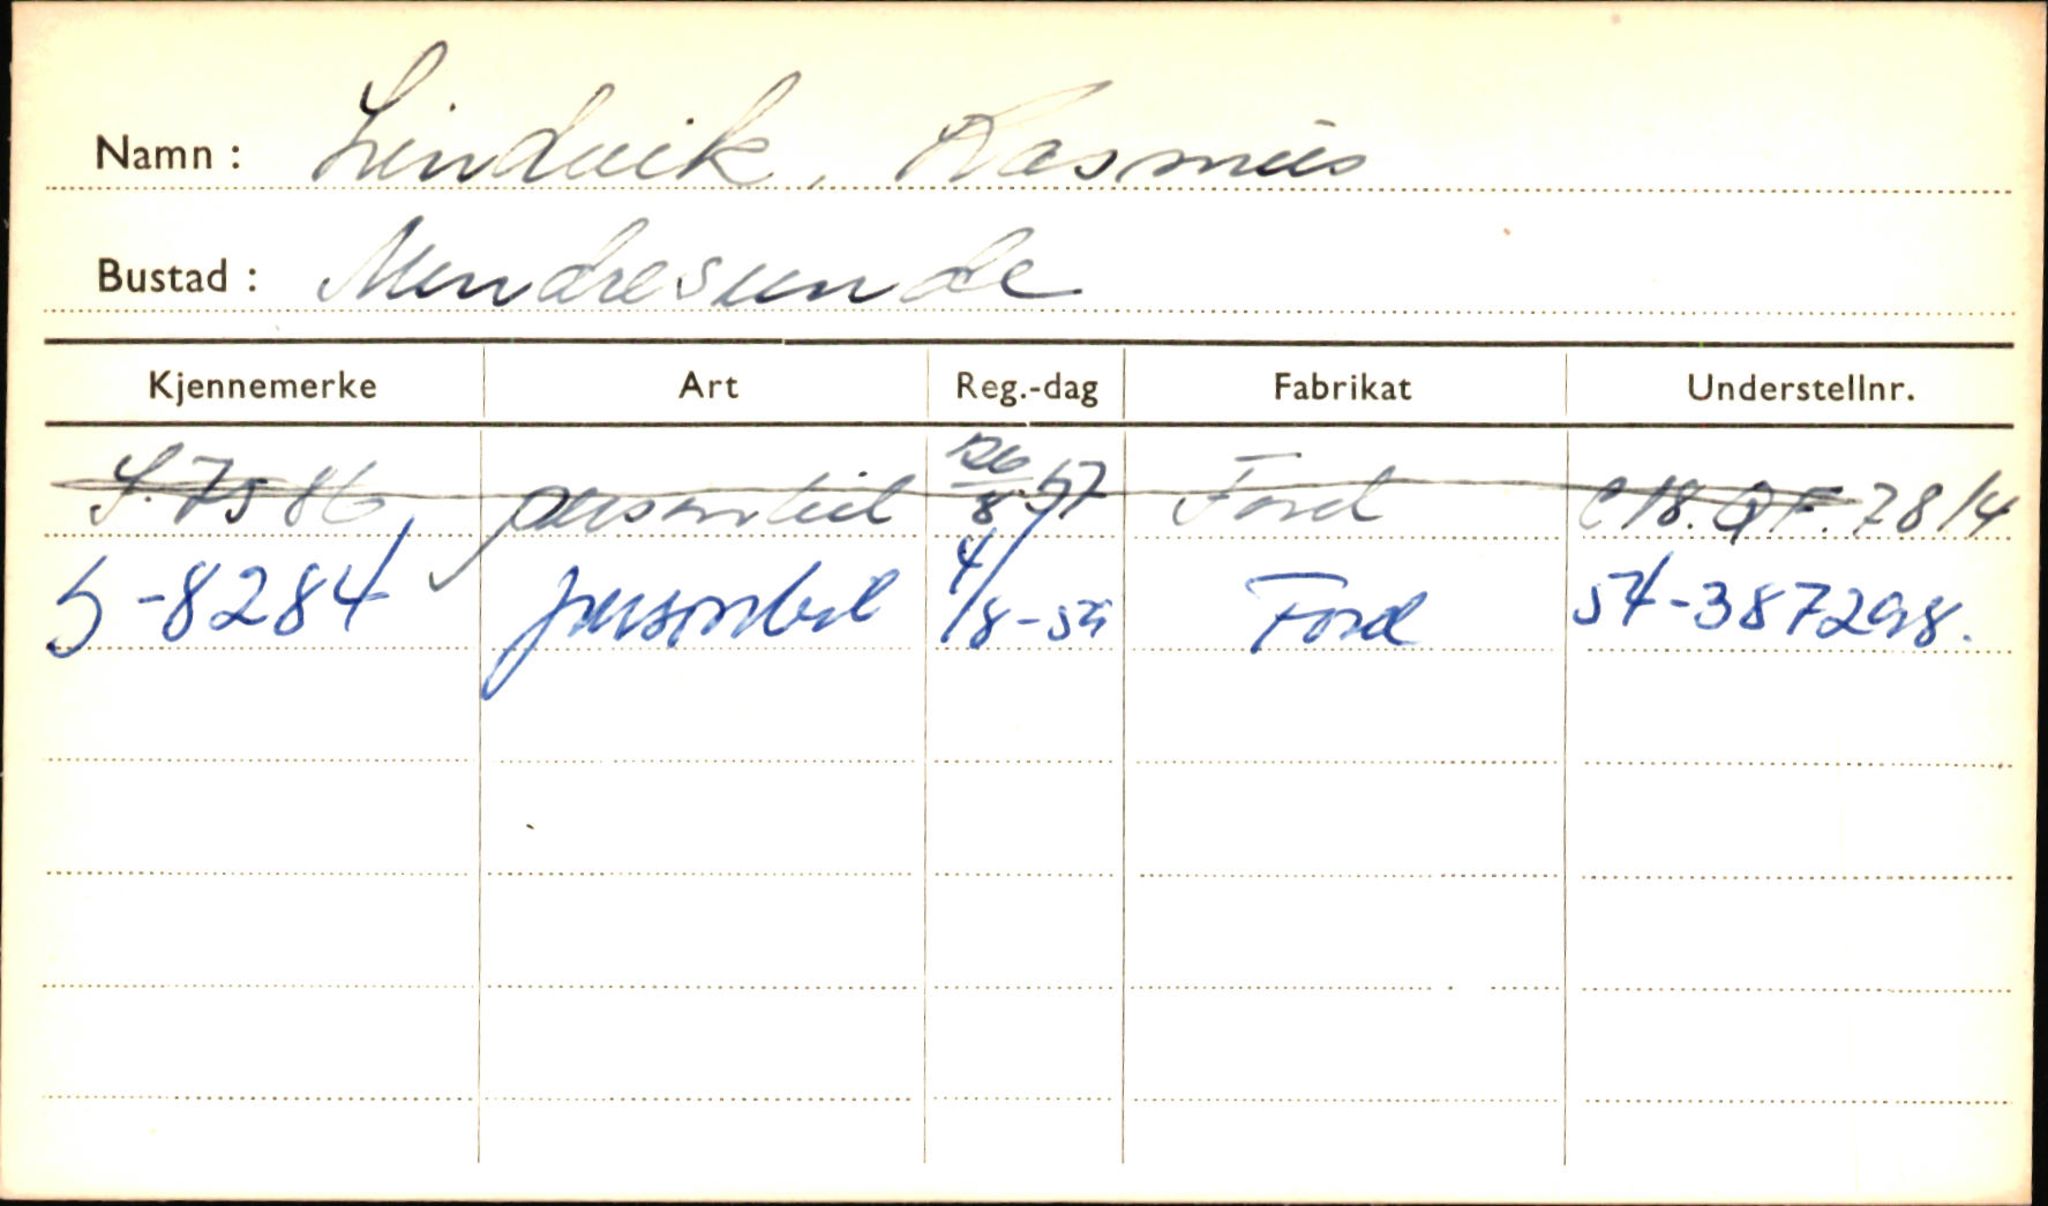 Namn : Lindvik, Rasmus
Bustad : Mindresunde
Kjennemerke Art Reg.-dag Fabrikat Understellnr.
S. 7586 personbil 26/8.57 Ford C18.QF.7814
S-8284 personbil 4/8-59 Ford 54-387298.